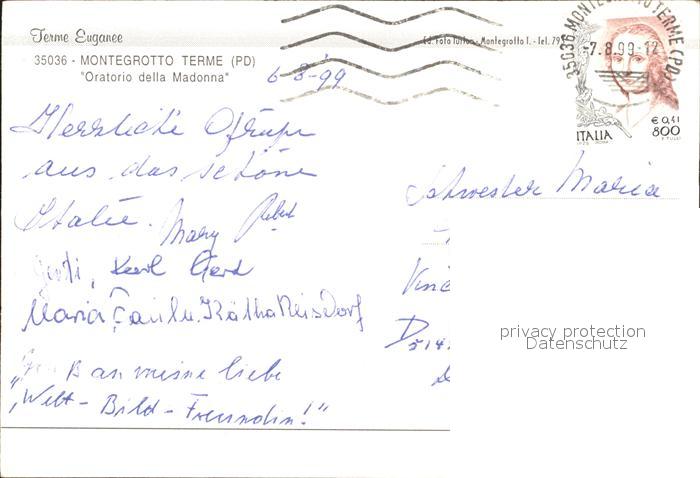 Terme Euganee
35036 - MONTEGROTTO TERME (PD)
"Oratorio della Madonna"
Ed. Foto Tuffo - Montegrotto T. - Tel. 79
6-8-'99
35036 MONTEGROTTO TERME (PD)
-7.8.99-12
€ 0,41
ITALIA 800
Herzliche Grüße
aus das schöne
Italie. Mary
Karl Gerd
Maria Käthe Reisdorf
an meine liebe
"Welt-Bild-Freundin!"
Schwester Maria
D
privacy protection
Datenschutz